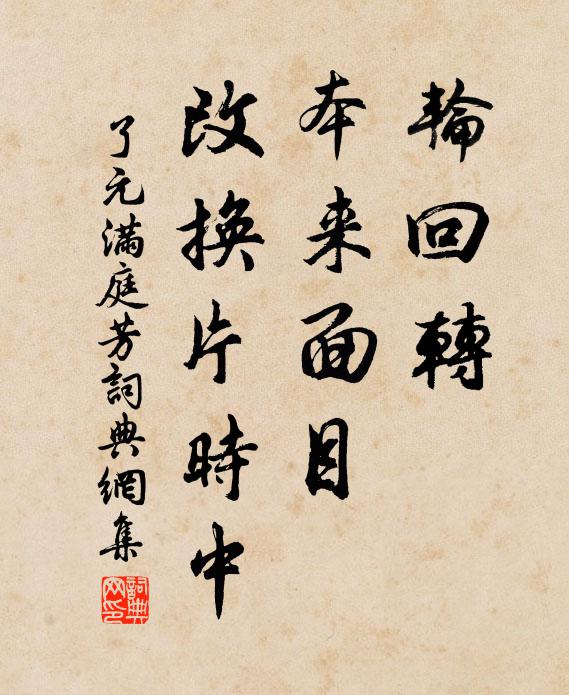 輪回轉
本来面目
改換片時中
了元滿庭芳詞典網集
詞典网印